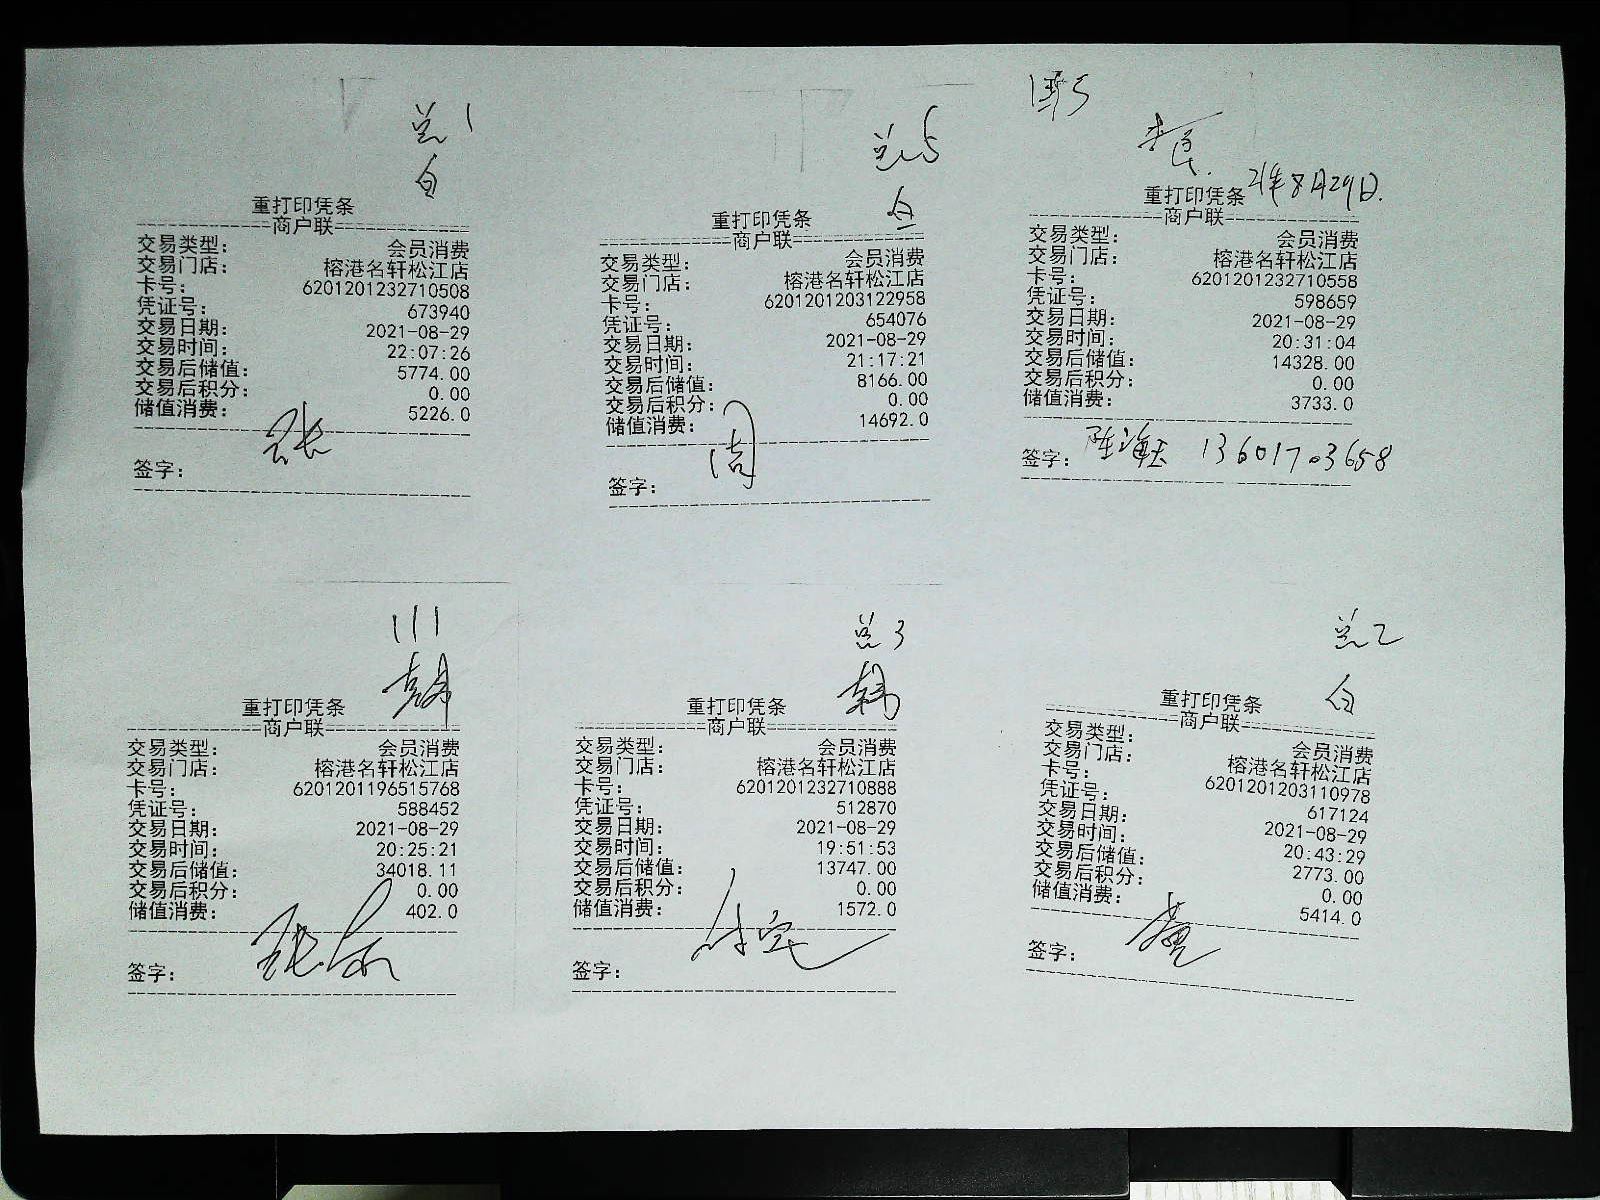 总1
白
重打印凭条
商户联
交易类型: 会员消费
交易门店: 榕港名轩松江店
卡号: 6201201232710508
凭证号: 673940
交易日期: 2021-08-29
交易时间: 22:07:26
交易后储值: 5774.00
交易后积分: 0.00
储值消费: 5226.0
张
签字:
总5
白
重打印凭条
商户联
交易类型: 会员消费
交易门店: 榕港名轩松江店
卡号: 6201201203122958
凭证号: 654076
交易日期: 2021-08-29
交易时间: 21:17:21
交易后储值: 8166.00
交易后积分: 0.00
储值消费: 14692.0
周
签字:
21年8月29日.
重打印凭条
商户联
交易类型: 会员消费
交易门店: 榕港名轩松江店
卡号: 6201201232710558
凭证号: 598659
交易日期: 2021-08-29
交易时间: 20:31:04
交易后储值: 14328.00
交易后积分: 0.00
储值消费: 3733.0
签字: 13601703658
111
韩
重打印凭条
商户联
交易类型: 会员消费
交易门店: 榕港名轩松江店
卡号: 6201201196515768
凭证号: 588452
交易日期: 2021-08-29
交易时间: 20:25:21
交易后储值: 34018.11
交易后积分: 0.00
储值消费: 402.0
签字:
总3
韩
重打印凭条
商户联
交易类型: 会员消费
交易门店: 榕港名轩松江店
卡号: 6201201232710888
凭证号: 512870
交易日期: 2021-08-29
交易时间: 19:51:53
交易后储值: 13747.00
交易后积分: 0.00
储值消费: 1572.0
签字:
总2
白
重打印凭条
商户联
交易类型: 会员消费
交易门店: 榕港名轩松江店
卡号: 6201201203110978
凭证号: 617124
交易日期: 2021-08-29
交易时间: 20:43:29
交易后储值: 2773.00
交易后积分: 0.00
储值消费: 5414.0
签字: